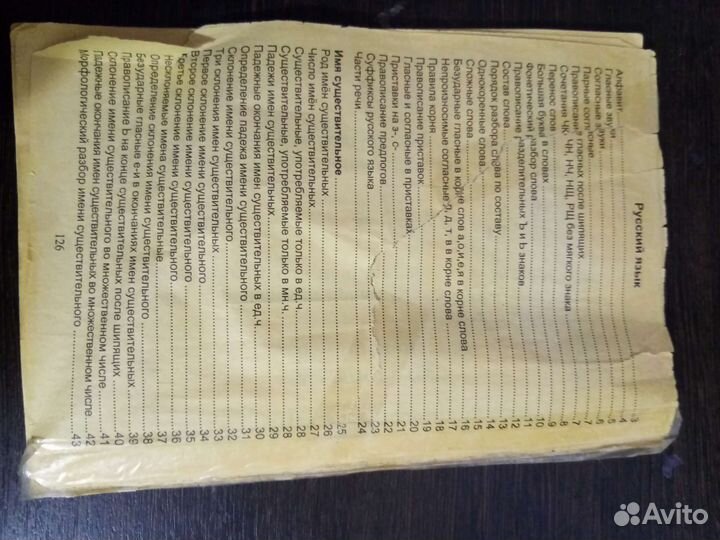 Русский язык
Алфавит ... 3
Гласные звуки ... 4
Согласные звуки ... 5
Парные согласные ... 6
Правописание гласных после шипящих ... 7
Сочетание ЧК, ЧН, НЧ, НЩ, РЩ без мягкого знака ... 7
Перенос слов ... 8
Большая буква в словах ... 9
Фонетический разбор слова ... 10
Правописание разделительных Ъ и Ь знаков ... 11
Состав слова ... 12
Порядок разбора слова по составу ... 13
Однокоренные слова ... 14
Сложные слова ... 16
Безударные гласные в корне слов а,о,и,е,я в корне слова ... 16
Непроизносимые согласные л, д, т, в в корне слова ... 17
Правила корня ... 18
Правописание приставок ... 19
Гласные и согласные в приставках ... 20
Приставки на з-, с- ... 21
Правописание предлогов ... 22
Суффиксы русского языка ... 23
Части речи ... 24
Имя существительное ... 25
Род имён существительных ... 26
Число имён существительных ... 27
Существительные, употребляемые только в ед.ч. ... 28
Существительные, употребляемые только в мн.ч. ... 28
Падежи имен существительных ... 29
Падежные окончания имен существительных в ед.ч. ... 30
Определение падежа имени существительного ... 31
Склонение имени существительного ... 32
Три склонения имен существительных ... 33
Первое склонение имени существительного ... 34
Второе склонение имени существительного ... 35
Третье склонение имени существительного ... 36
Несклоняемые имена существительные ... 37
Определение склонения имени существительного ... 38
Безударные гласные е-и в окончаниях имен существительных ... 39
Правописание Ь на конце существительных после шипящих ... 40
Склонение имени существительного во множественном числе ... 41
Падежные окончания имен существительных во множественном числе ... 42
Морфологический разбор имени существительного ... 43
126
Avito